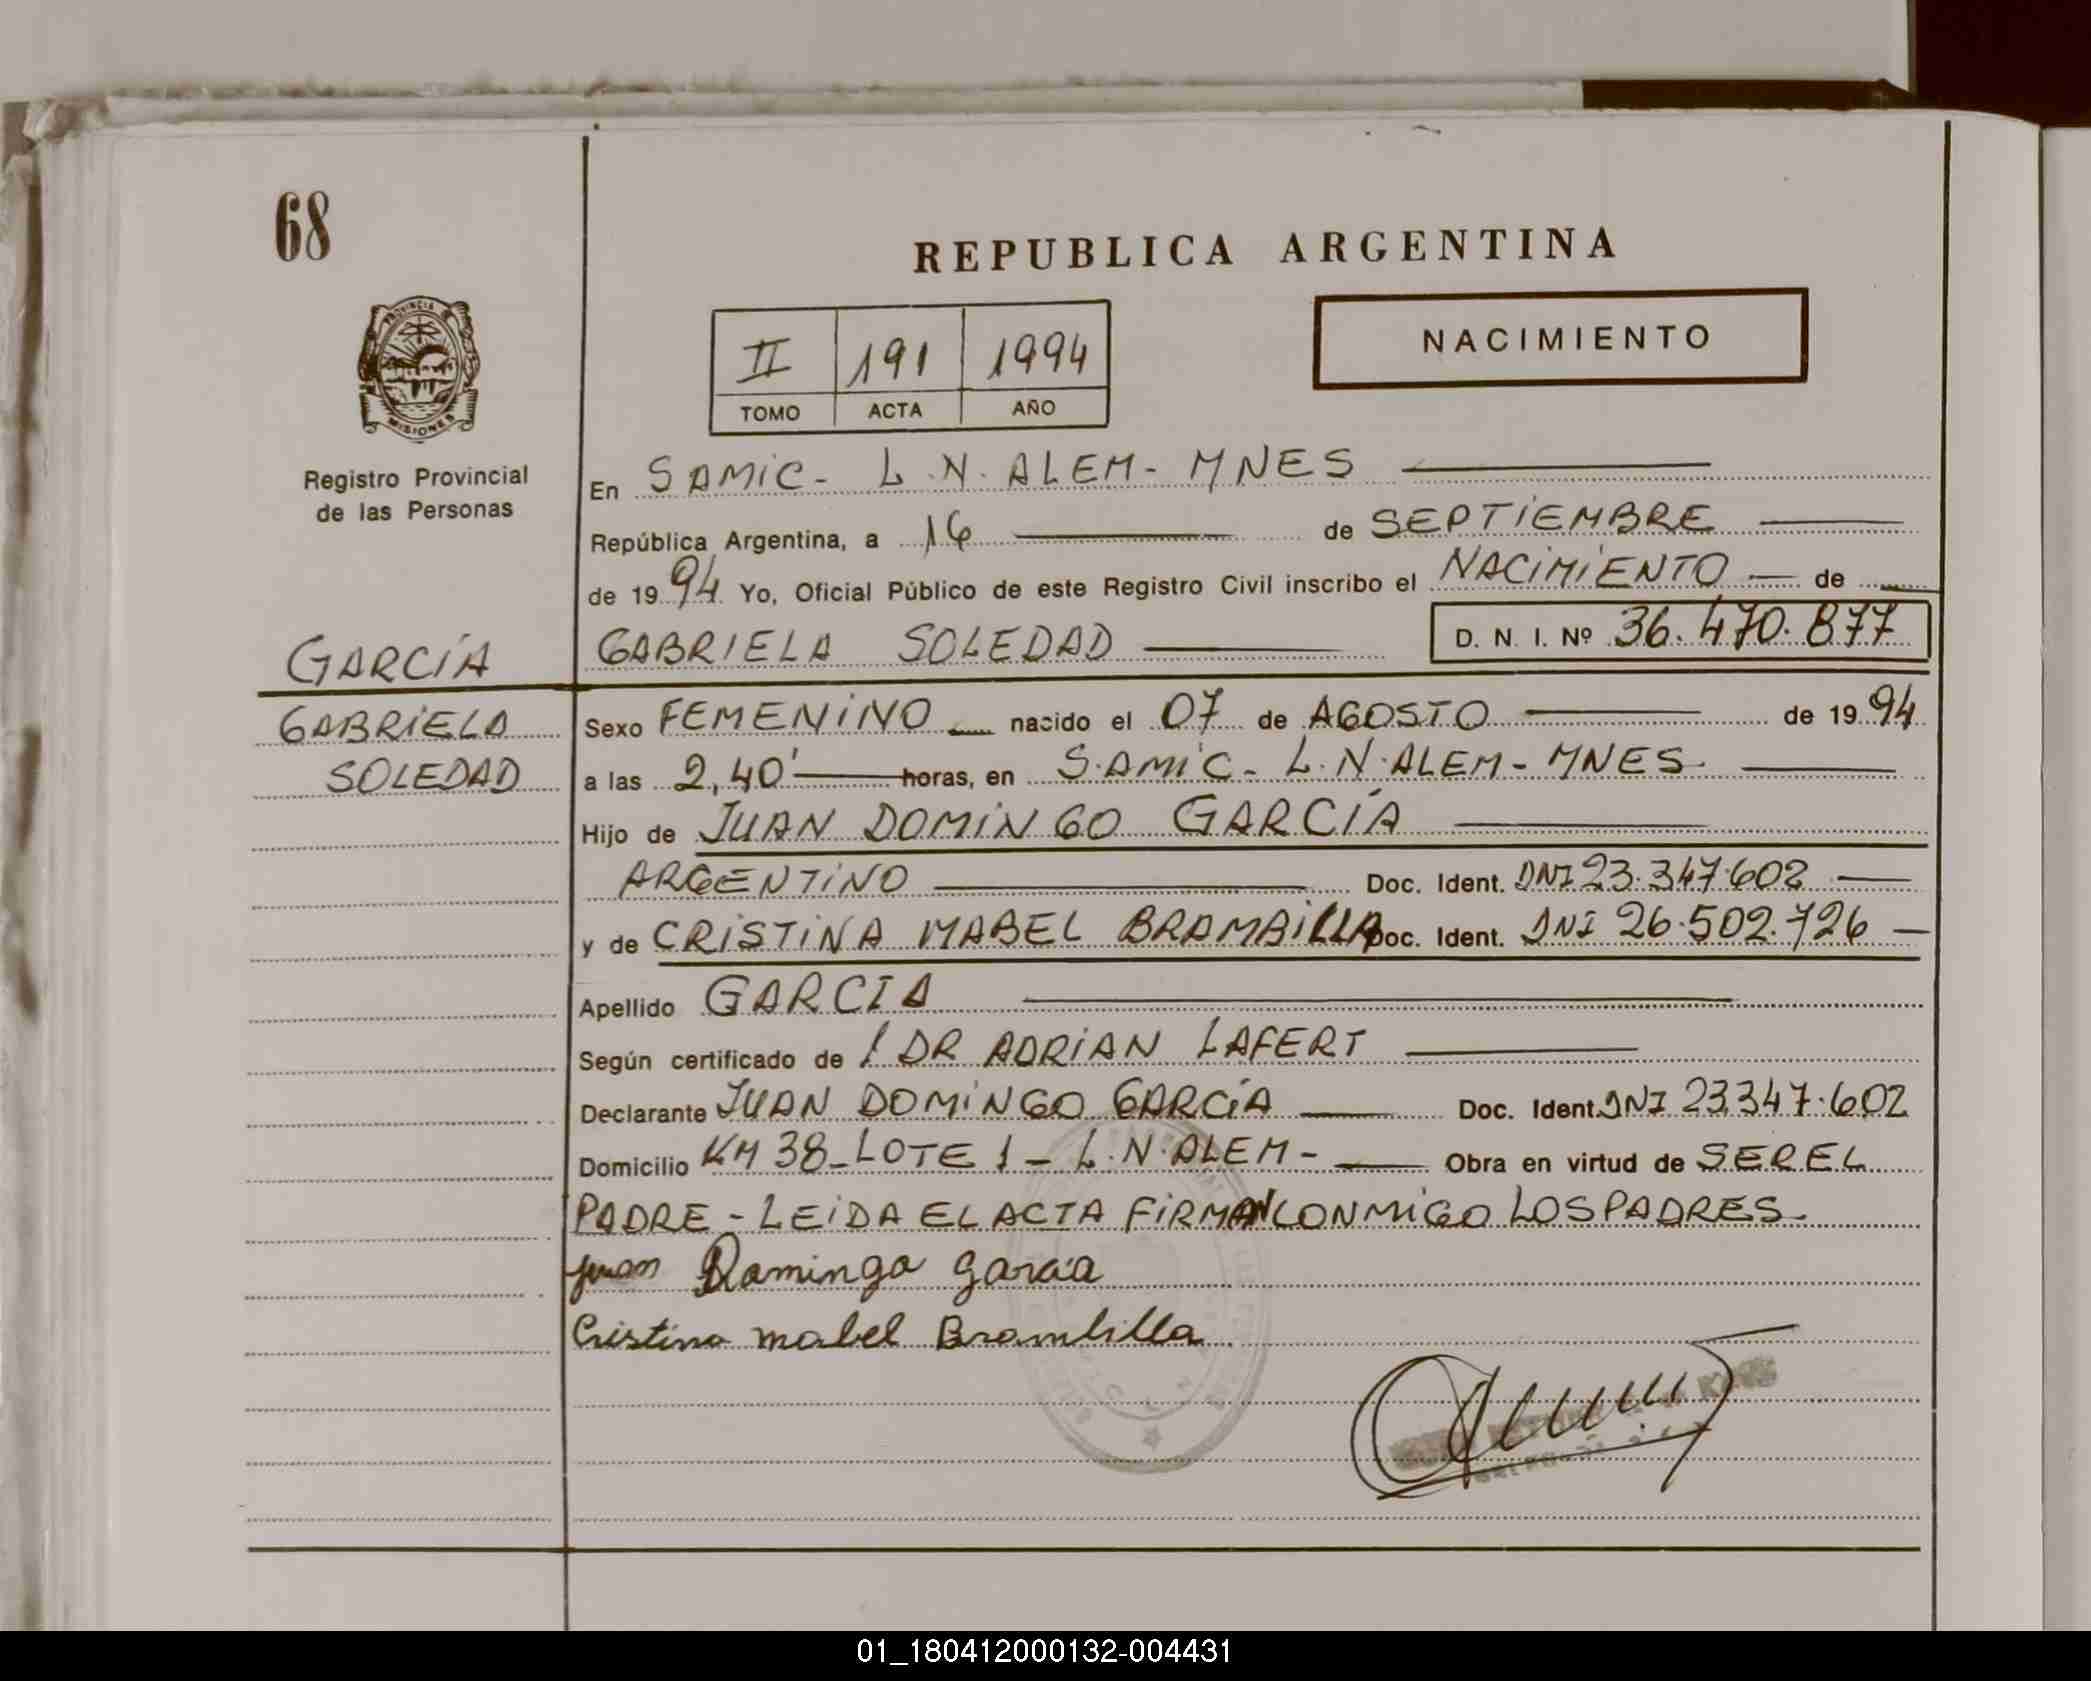 68
REPUBLICA ARGENTINA
PROVINCIA
MISIONES
Registro Provincial
de las Personas
II 191 1994
TOMO ACTA AÑO
NACIMIENTO
En SAMIC - L.N. ALEM - MNES
República Argentina, a 16 de SEPTIEMBRE
de 1994 Yo, Oficial Público de este Registro Civil inscribo el NACIMIENTO de
GARCÍA
GABRIELA SOLEDAD D. N. I. Nº 36.470.877
GABRIELA
SOLEDAD
Sexo FEMENINO nacido el 07 de AGOSTO de 1994
a las 2,40' horas, en S.AMIC - L.N.ALEM - MNES
Hijo de JUAN DOMINGO GARCÍA
ARGENTINO Doc. Ident. DNI 23.347.602
y de CRISTINA MABEL BRAMBILLA Doc. Ident. DNI 26.502.726
Apellido GARCIA
Según certificado de l DR ADRIAN LAFERT
Declarante JUAN DOMINGO GARCÍA Doc. Ident. DNI 23.347.602
Domicilio KM 38 - LOTE 1 - L.N.ALEM - Obra en virtud de SER EL
PADRE - LEIDA EL ACTA FIRMAN CONMIGO LOS PADRES
Juan Domingo Garcia
Cristina Mabel Brambilla
01_180412000132-004431